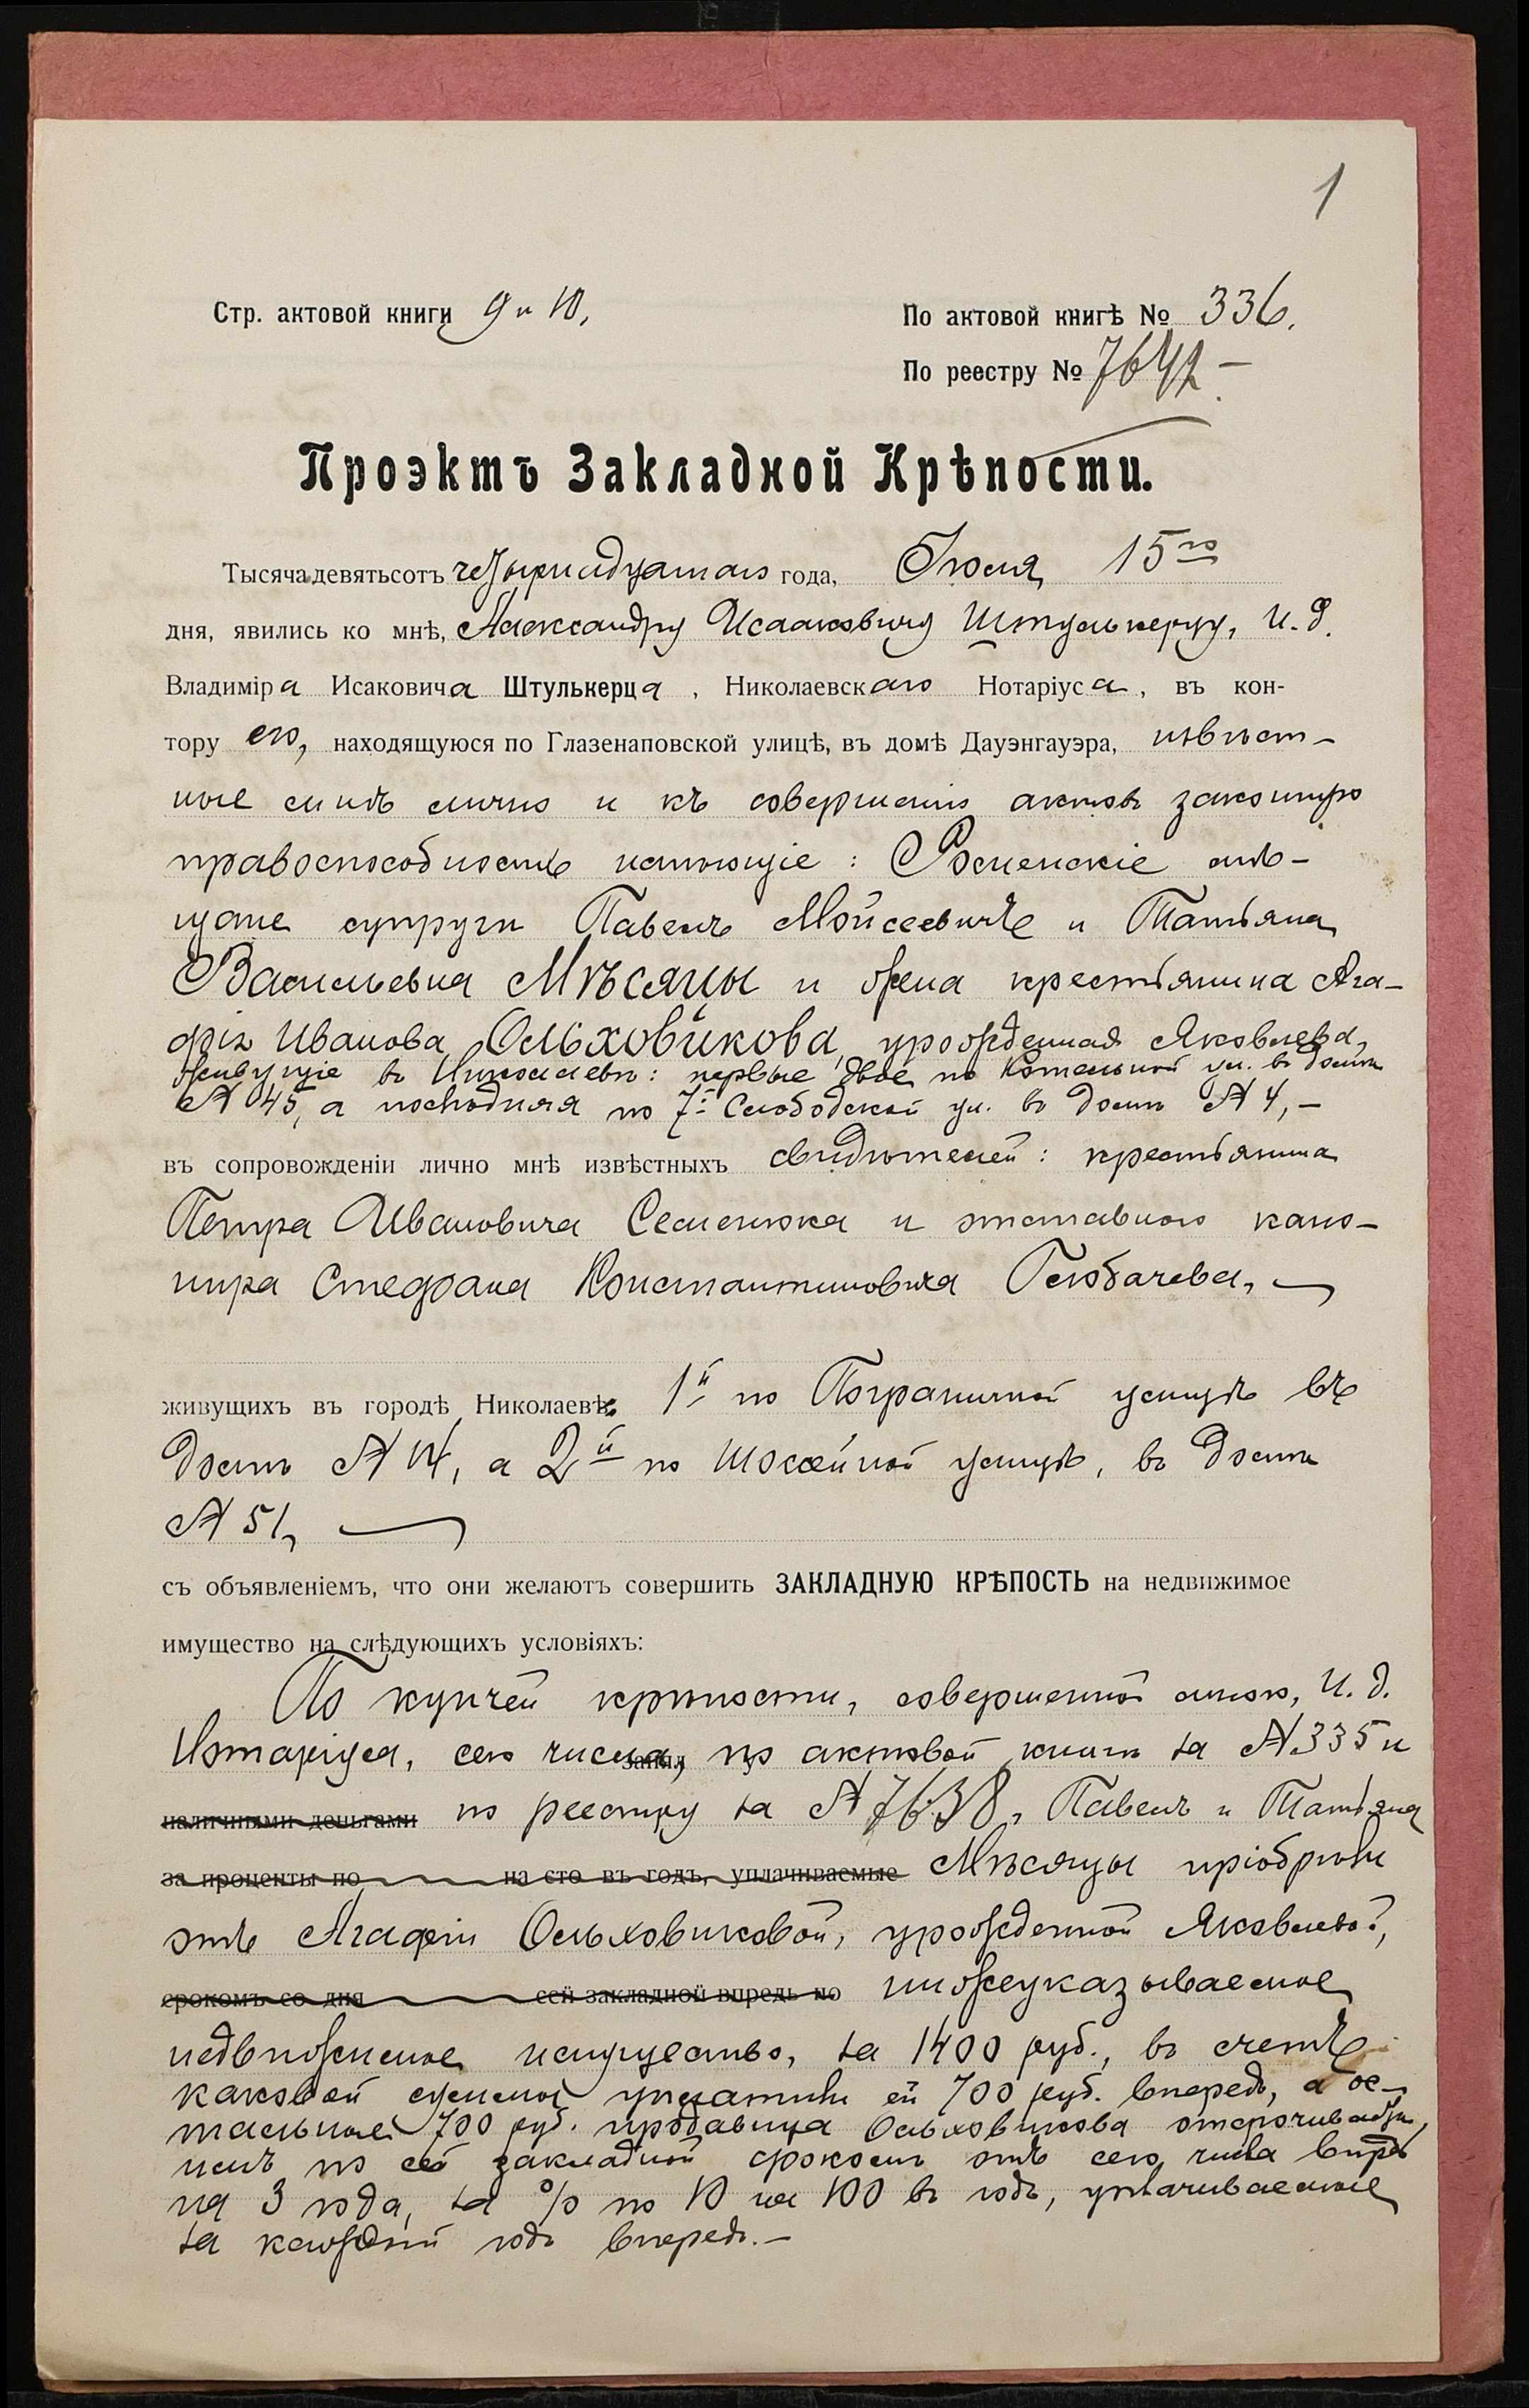 1
Стр. актовой книги 9 и 10,
По актовой книгѣ № 336.
По реестру № 7642 –
Проэктъ Закладной Крѣпости.
Тысяча девятьсотъ четырнадцатаго года, Іюля 15го
дня, явились ко мнѣ, Александру Исааковичу Штулькерцу, И. д.
Владиміра Исаковича Штулькерца, Николаевскаго Нотаріуса, въ кон-
тору его, находящуюся по Глазенаповской улицѣ, въ домѣ Дауэнгауэра, извѣст-
ные мнѣ лично и къ совершенію актовъ законную
правоспособность имѣющіе: Роменскіе мѣ-
щане супруги Павелъ Мойсеевичъ и Татьяна
Васильевна Мѣсяцы и жена крестьянина Ага-
фія Иванова Ольховикова, урожденная Яковлева,
живущіе въ Николаевѣ: первые двое по Котельной ул. въ домѣ
№ 45, а послѣдняя по 7й Слободской ул. въ домѣ № 4, –
въ сопровожденіи лично мнѣ извѣстныхъ свидѣтелей: крестьянина
Петра Ивановича Семенюка и отставного кано-
нира Стефана Константиновича Голобачева,
живущихъ въ городѣ Николаевѣ: 1й по Пограничной улицѣ въ
домѣ № 14, а 2й по Шоссейной улицѣ, въ домѣ
№ 51,
съ объявленіемъ, что они желаютъ совершить ЗАКЛАДНУЮ КРѢПОСТЬ на недвижимое
имущество на слѣдующихъ условіяхъ:
По купчей крѣпости, совершенной мною, И. д.
Нотаріуса, сего числа, по актовой книгѣ за № 335 и
наличными деньгами по реестру за № 7638, Павелъ и Татьяна
за проценты по на сто въ годъ, уплачиваемые Мѣсяцы пріобрѣли
отъ Агафіи Ольховиковой, урожденной Яковлевой,
срокомъ со дня сей закладной впредь по нижеуказываемое
недвижимое имущество, за 1400 руб., въ счетъ
каковой суммы уплатили ей 700 руб. впередъ, а ос-
тальные 700 руб. продавица Ольховикова отсрочиваетъ
имъ по сей закладной срокомъ отъ сего числа впредь
на 3 года, за % по 10 на 100 въ годъ, уплачиваемые
за каждый годъ впередъ. –